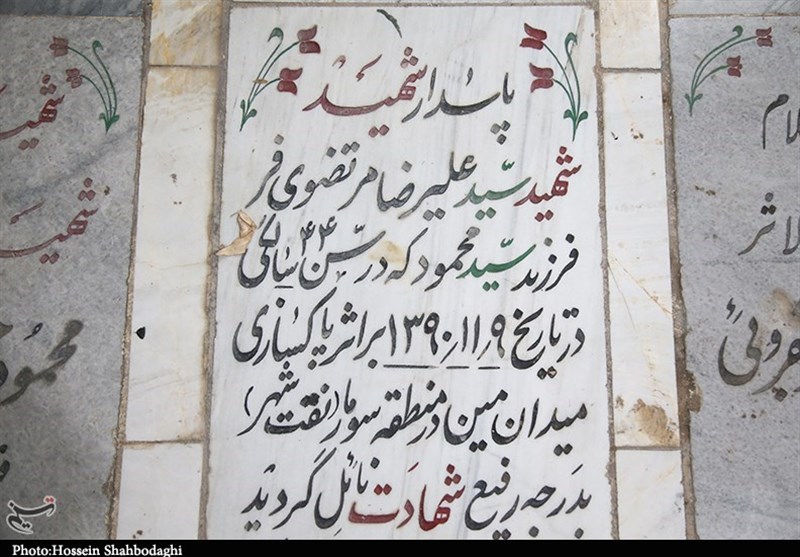 پاسدار شهید
شهید سیّد علیرضا مرتضوی فر
فرزند سیّد محمود که در سّن ۴۴ سالگی
در تاریخ ۱۳۹۰٫۱۱٫۹ بر اثر پاکسازی
میدان مین در منطقه سومار (نفت شهر)
بدرجه رفیع شهادت نائل گردید
شهید
شهید
محمود
تسنیم
Photo:Hossein Shahbodaghi